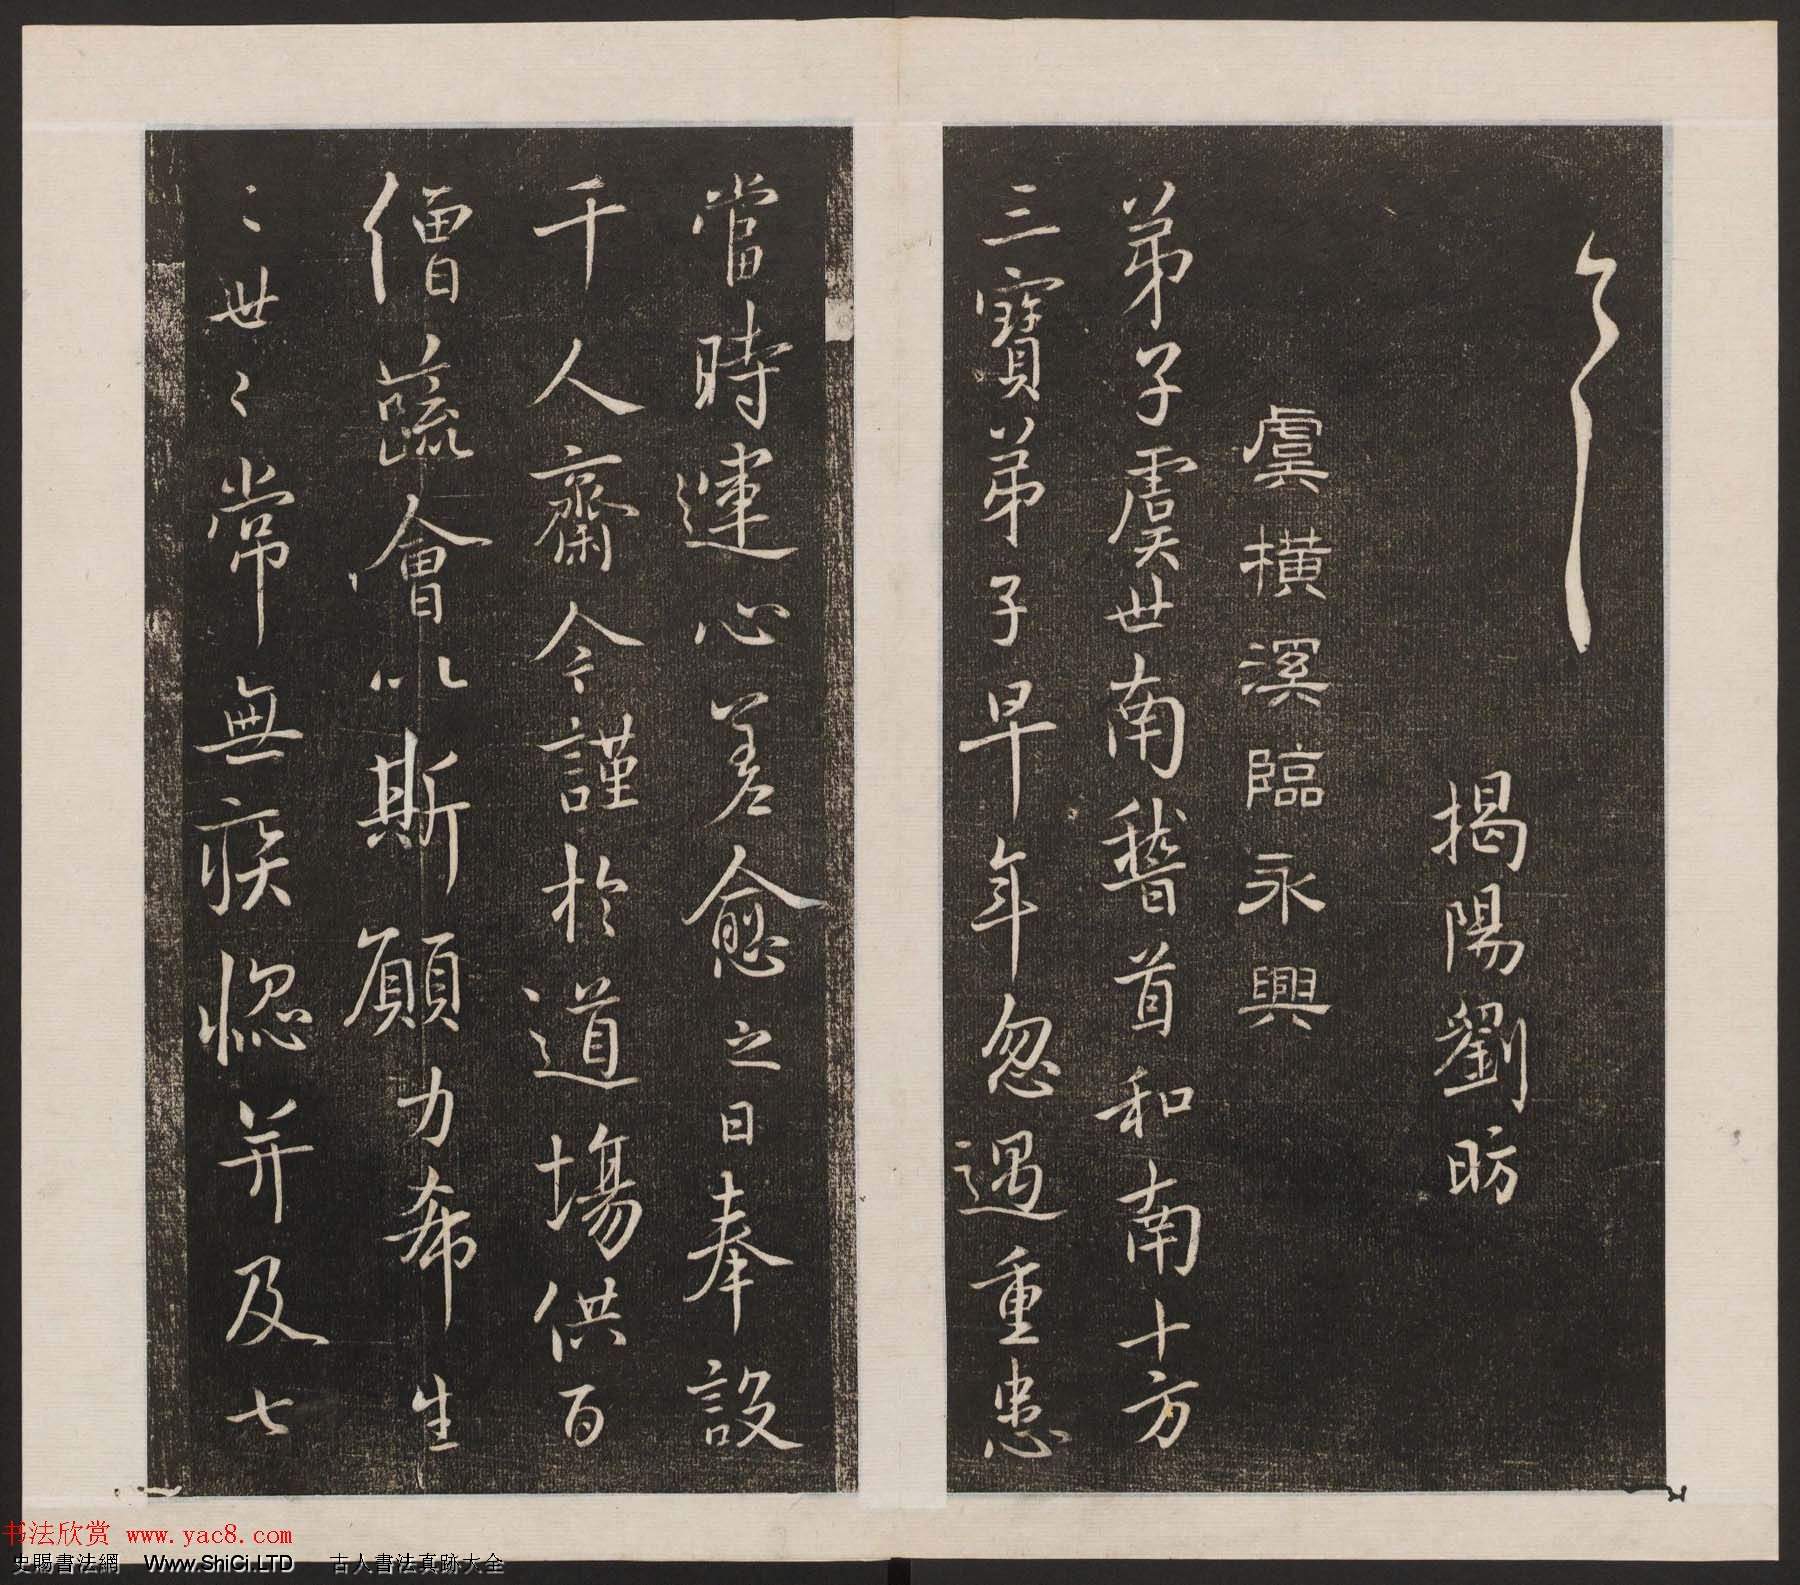 揭陽劉昉
虞橫溪臨永興
弟子虞世南稽首和南十方
三寶弟子早年忽遇重患
當時運心差愈之日奉設
千人齋今謹於道場供百
僧蔬會以斯願力希生
〻世〻常無疾惱并及七
书法欣赏 www.yac8.com
史賜書法網 Www.ShiCi.LTD 古人書法真跡大全